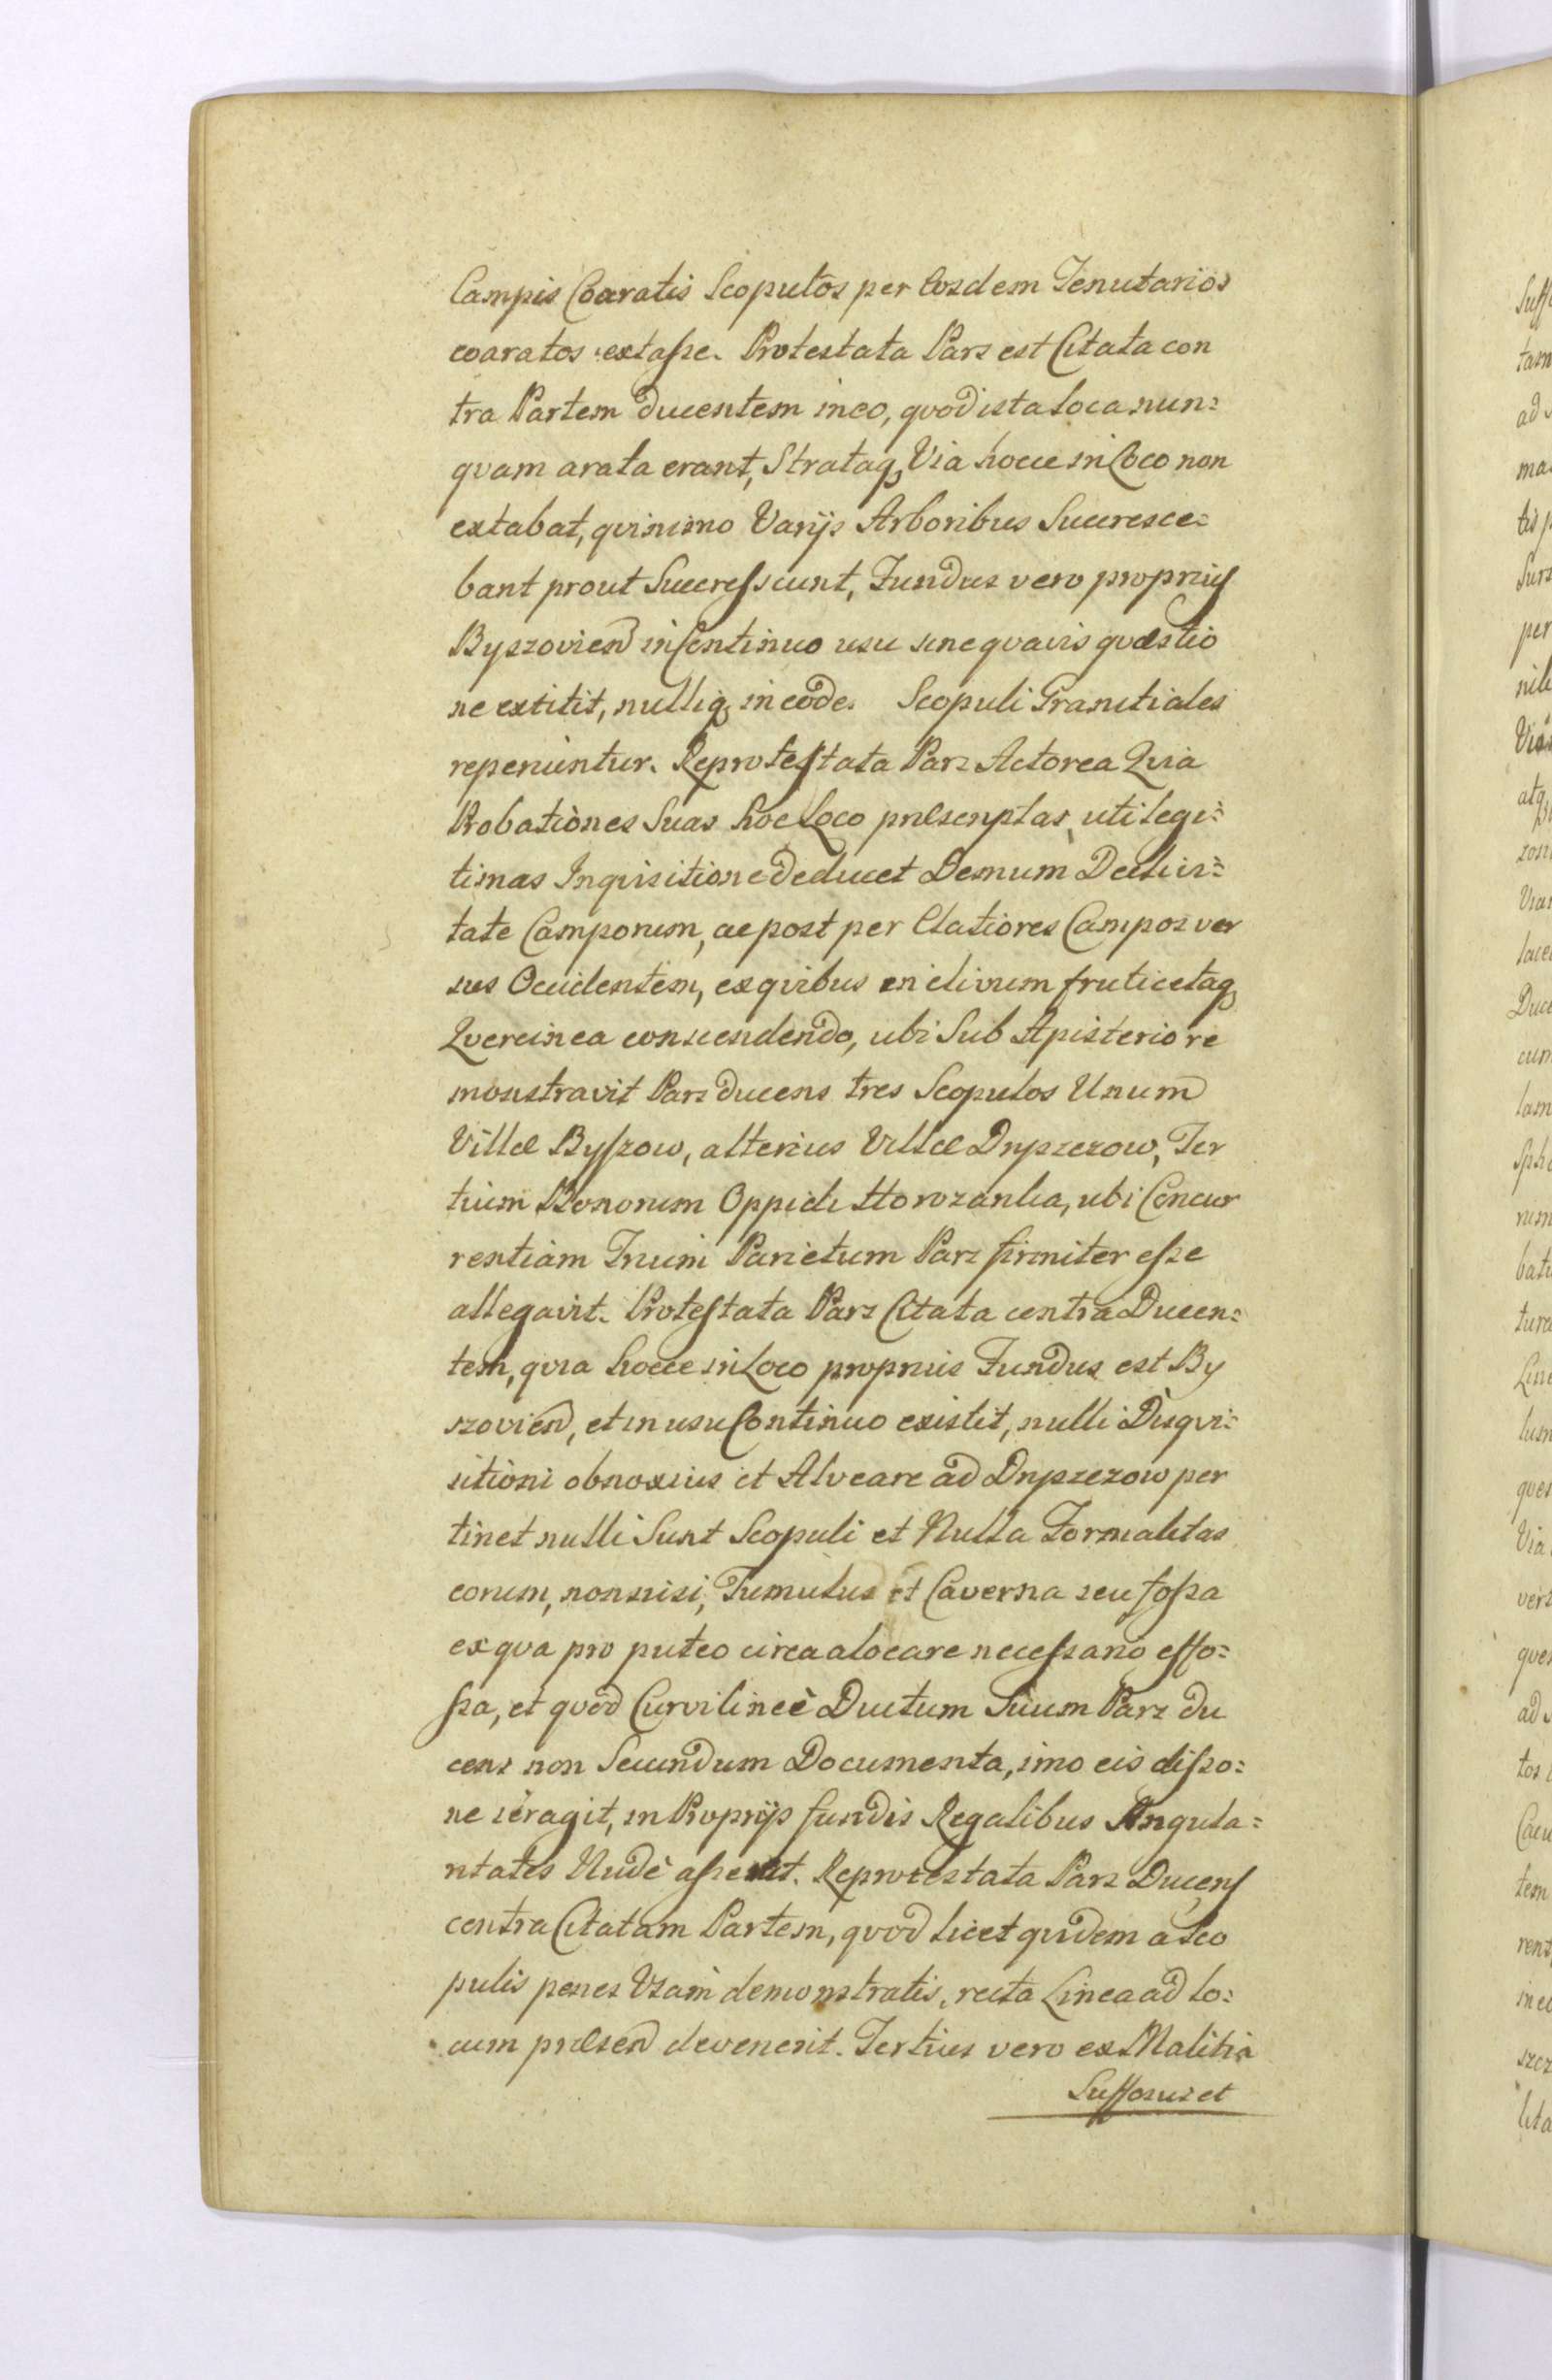 Campis Coaratis Scopulos per Eosdem Tenutarios
coaratos extaſse. Protestata Pars est Citata con
tra Partem ducentem in eo, qvod ista loca nun=
qvam arata erant, Strataq Via hocce in Loco non
extabat, qvinimo Varijs Arboribus Succresce=
bant prout Succreſscunt, Fundus vero propriuſ
Byszovien in Continuo usu sine qvavis qvæstio
ne extitit, nulliq in eode. Scopuli Granitiales
reperiuntur. Reproteſtata Pars Actorea Qvia
Probationes Suas hoc Loco præscriptas, uti legi=
timas Inqvisitione deducet Demum Declivi=
tate Camporum, ac post per Elatiores Campos ver
sus Occidentem, ex qvibus in clivum fruticetaq
Qvercinea conscendendo, ubi Sub Apisterio re
monstravit Pars ducens tres Scopulos Unum
Villæ Byſzow, alterius Villæ Dryszczow, Ter
tium Bonorum Oppidi Horozanka, ubi Concur
rentiam Trium Parietum Pars firmiter eſse
allegavit. Proteſtata Pars Citata contra Ducen=
tem, qvia hocce in Loco proprius Fundus est By
szovien, et in usu Continuo existit, nulli Disqvi=
sitioni obnoxius et Alveare ad Dryszczow per
tinet nulli Sunt Scopuli et Nulla Formalitas
eorum, non nisi, Tumulus et Caverna seu foſsa
ex qva pro puteo circa alveare neceſsario effo=
ſsa, et qvod Curvilineè Ductum Suum Pars du
cens non Secundum Documenta, imo eis diſso=
ne peragit, in Proprijs fundis Regalibus Angula=
ritates Nudè aſserit. Reprotestata Pars Ducenſ
contra Citatam Partem, qvod licet qvidem a Sco
pulis penes Viam demonstratis, recta Linea ad lo=
cum præsen devenerit. Tertius vero ex Malitia
Suffosus et